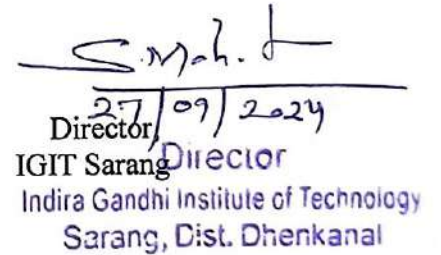 27/09/2024
Director,
IGIT Sarang Director
Indira Gandhi Institute of Technology
Sarang, Dist. Dhenkanal